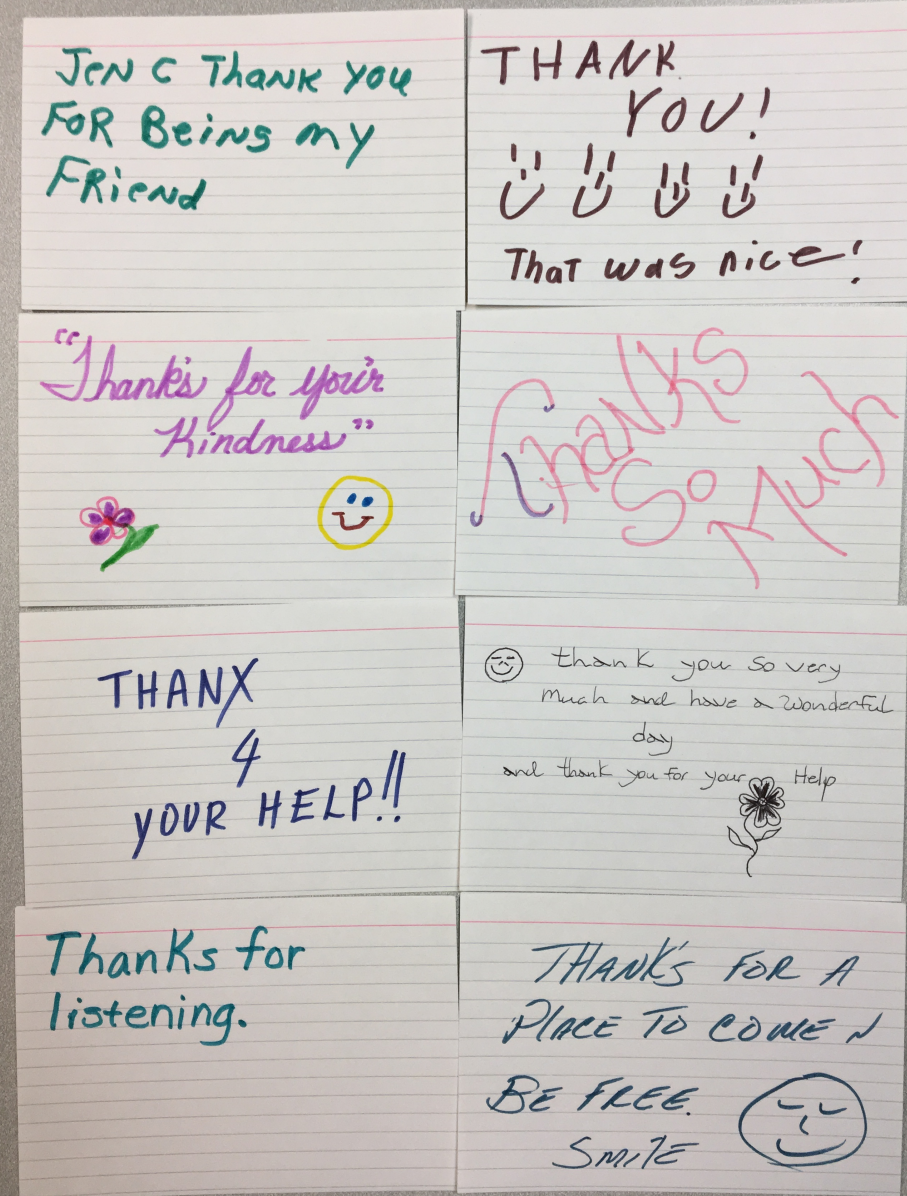 Jen C Thank you
For Being my
Friend
THANK
YOU!
That was nice!
"Thank's for your
Kindness"
Thanks
So
Much
THANX
4
YOUR HELP!!
thank you so very
much and have a wonderful
day
and thank you for your Help
Thanks for
listening.
THANK'S FOR A
PLACE TO COME N
BE FREE.
SMILE